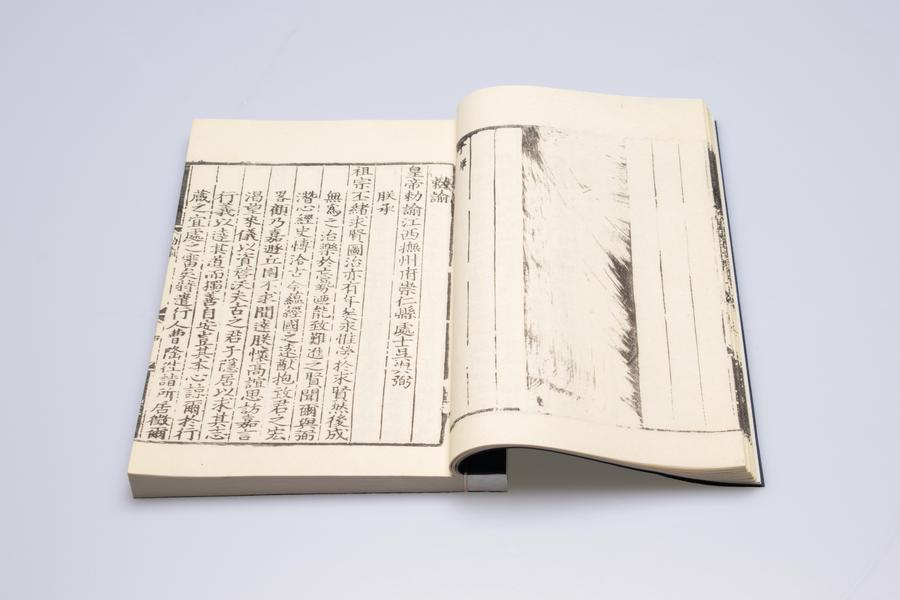 敕諭
皇帝勅諭江西撫州府崇仁縣處士吳與弼
朕承
祖宗丕緒求賢圖治亦有年矣永惟勞於求賢然後成
無爲之治樂於忘勢迺能致難進之賢聞爾與弼
潛心經史博洽古今蘊經國之遠猷抱致君之宏
畧顧乃嘉遯丘園不求聞達朕懷高誼思訪嘉言
渴望來儀以資啓沃夫古之君子隱居以求其志
行義以達其道而獨善自安豈其本心諒爾於行
藏之宜處之當矣特遣行人曹隆徃詣所居徵爾